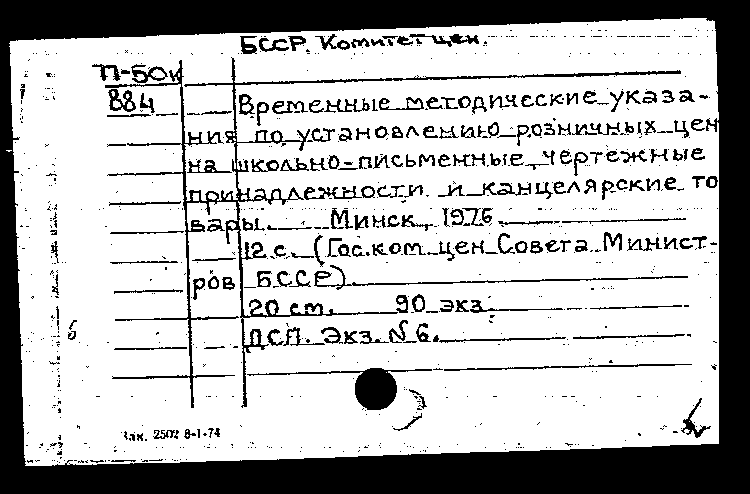 БССР. Комитет цен.
П-50к
884
Временные методические указа-
ния по установлению розничных цен
на школьно-письменные, чертежные
принадлежности и канцелярские то
вары. Минск, 1976.
12 с. (Гос.ком.цен Совета Минист-
ров БССР).
20 см. 90 экз.
ДСП. Экз. №6.
б
Зак. 2502 8-1-74